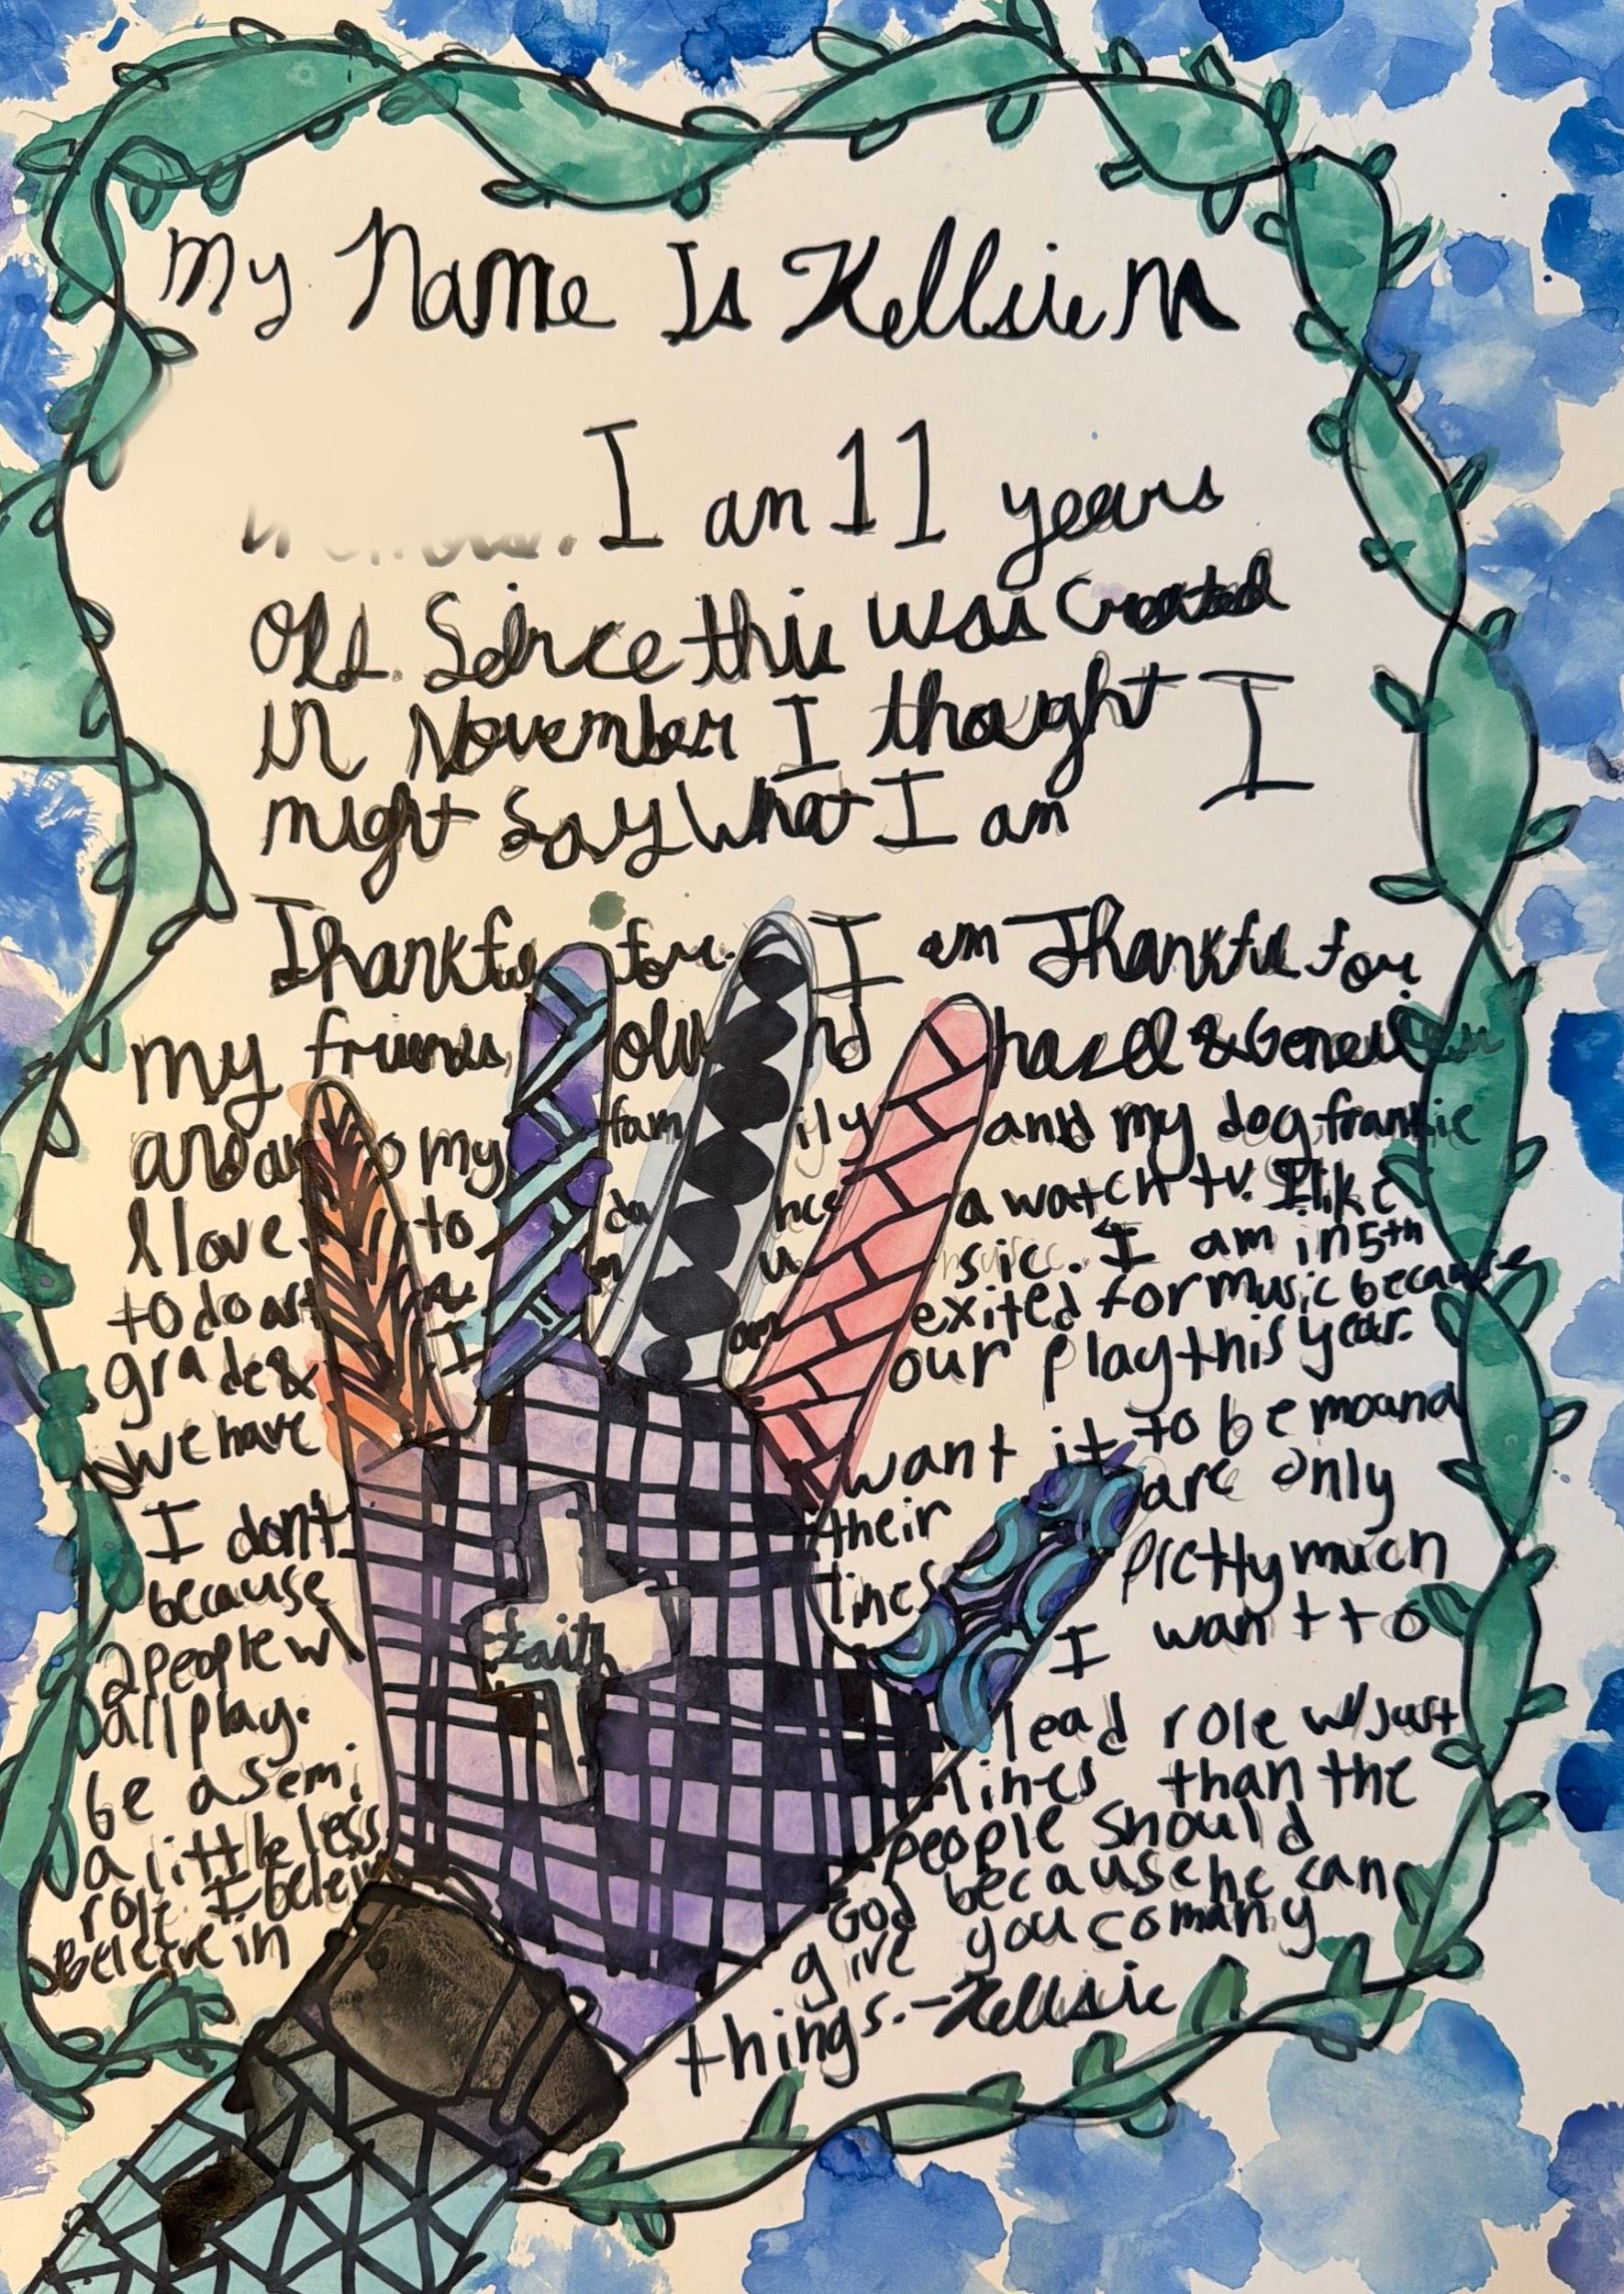 My Name Is Kellsie M
I am 11 years
old. Seince this was created
in November I thought I
might say what I am
Thankful for. I am Thankful for
my friends, nd hazel &
my family and my dog frankie
I love to dance a watch tv. I like
to do art music. I am in 5th
grade & I am exited for music because
we have our play this year.
I dont want it to be moana
because their are only
2 people w\ lines pretty much
all play. I want to
be a semi lead role w/ just
a little less lines than the
role. I belei people should
beleive in God because he can
give you so many
things. - Kellsie
faith